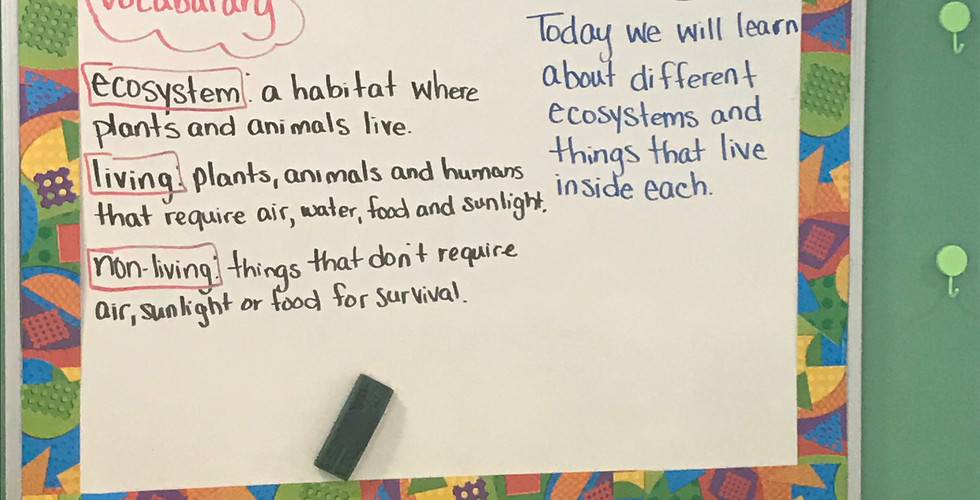 vocabulary
ecosystem: a habitat where
plants and animals live.
living: plants, animals and humans
that require air, water, food and sunlight.
non-living: things that don't require
air, sunlight or food for survival.
Today we will learn
about different
ecosystems and
things that live
inside each.